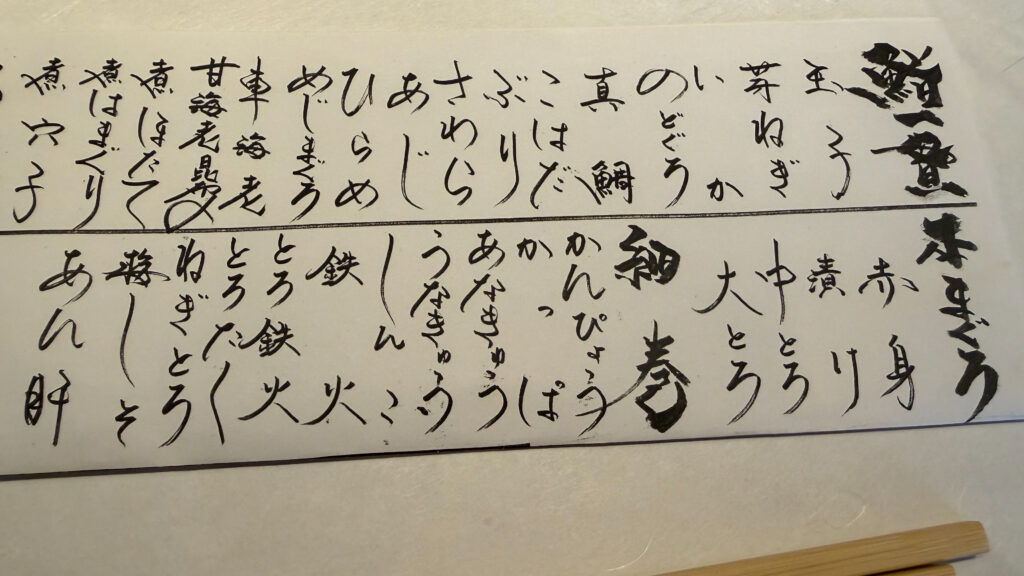 鮨一貫
玉子
芽ねぎ
いか
のどぐろ
真鯛
こはだ
ぶり
さわら
あじ
ひらめ
めじまぐろ
車海老
甘海老昆〆
煮ほたて
煮はまぐり
煮穴子
本まぐろ
赤身
漬け
中とろ
大とろ
細巻
かんぴょう
かっぱ
あなきゅう
うなきゅう
しんこ
鉄火
とろ鉄火
とろたく
ねぎとろ
梅しそ
あん肝